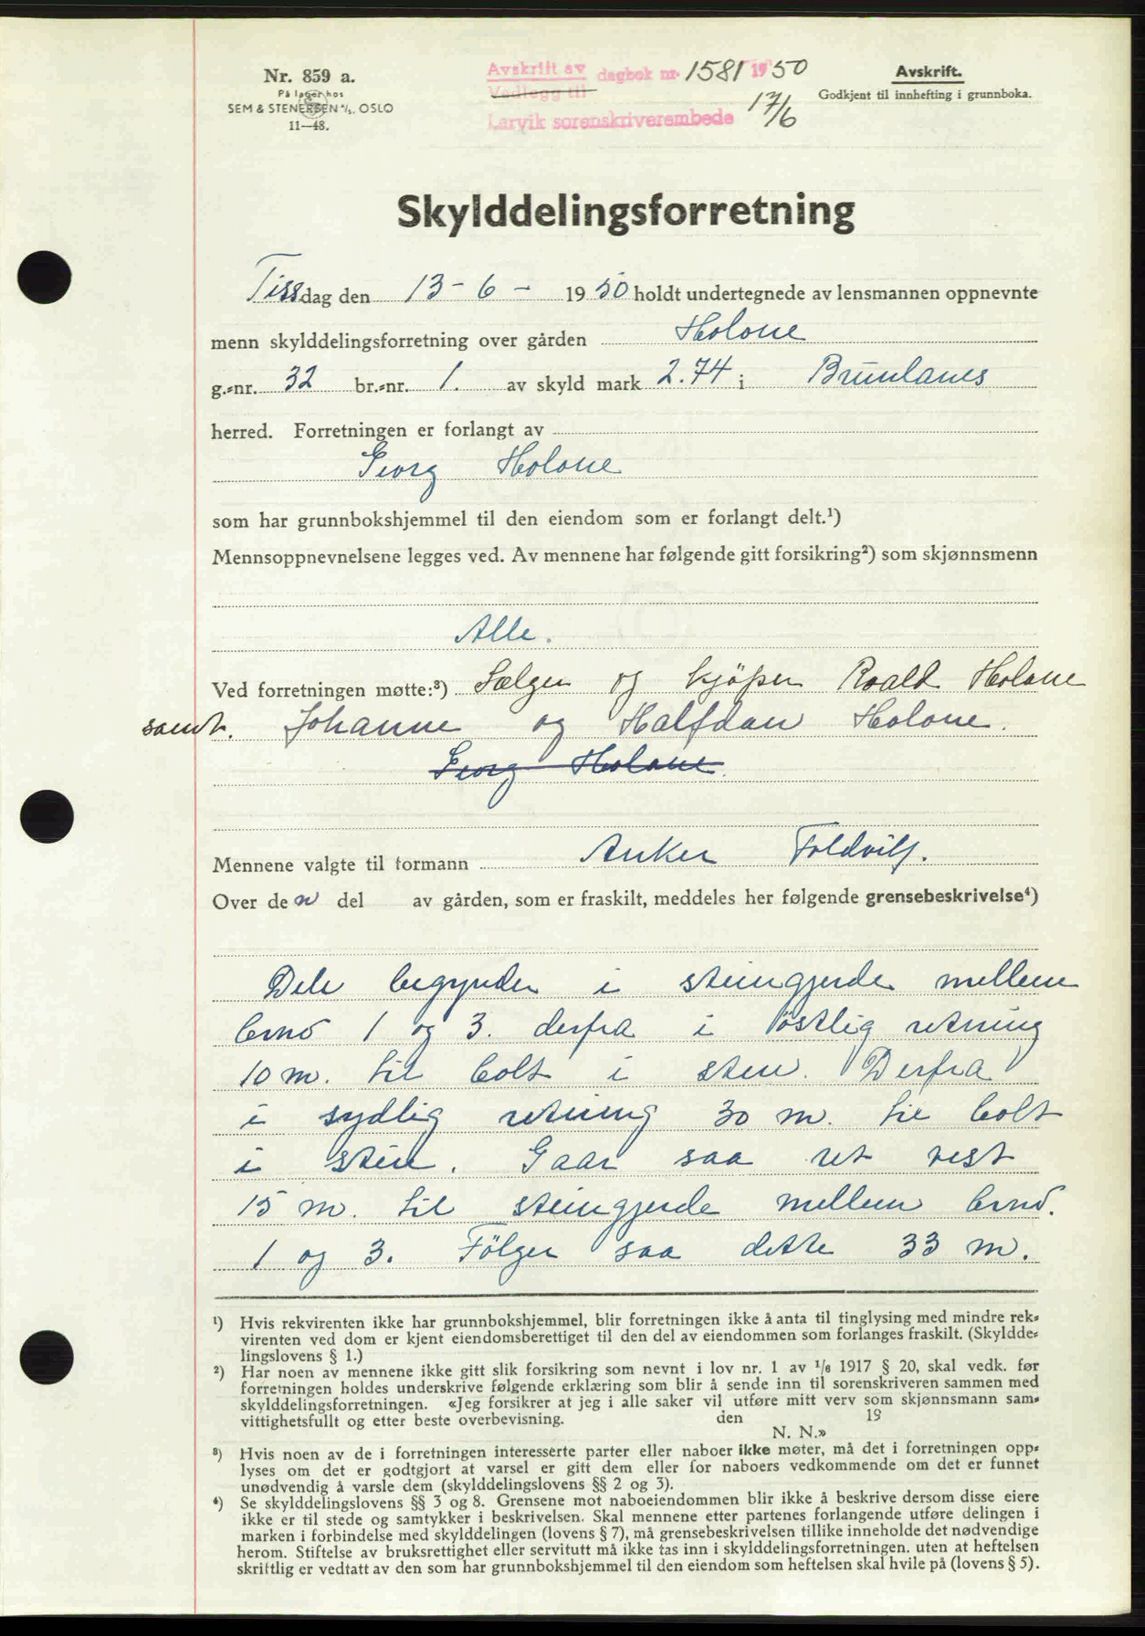 Nr. 859 a.
På lager hos
SEM & STENERSEN A/S. OSLO
11—48.
Avskrift av dagbok nr. 1581 1950
Vedlegg til
17/6
Larvik sorenskriverembede
Avskrift.
Godkjent til innhefting i grunnboka.
Skylddelingsforretning
Tissdag den 13 - 6 - 1950 holdt undertegnede av lensmannen oppnevnte
menn skylddelingsforretning over gården Holone
g.-nr. 32 br.-nr. 1. av skyld mark 2.74 i Brunlanes
herred. Forretningen er forlangt av
Georg Holone
som har grunnbokshjemmel til den eiendom som er forlangt delt.¹)
Mennsoppnevnelsene legges ved. Av mennene har følgende gitt forsikring²) som skjønnsmenn
Alle.
Ved forretningen møtte:³) Sælger og kjöper Roald Holone
samt. Johanne og Halfdan Holone.
Georg Holone.
Mennene valgte til formann Anker Foldvik.
Over den del av gården, som er fraskilt, meddeles her følgende grensebeskrivelse⁴)
Dele begynder i steingjerde mellem
brno 1 og 3. derfra i östlig retning
10 m. til bolt i sten. Derfra
i sydlig retning 30 m. til bolt
i sten. Gaar saa ret vest
15 m. til steingjerde mellem brno.
1 og 3. Fölger saa dette 33 m.
¹) Hvis rekvirenten ikke har grunnbokshjemmel, blir forretningen ikke å anta til tinglysing med mindre rek-
virenten ved dom er kjent eiendomsberettiget til den del av eiendommen som forlanges fraskilt. (Skyldde-
lingslovens § 1.)
²) Har noen av mennene ikke gitt slik forsikring som nevnt i lov nr. 1 av 1/6 1917 § 20, skal vedk. før
forretningen holdes underskrive følgende erklæring som blir å sende inn til sorenskriveren sammen med
skylddelingsforretningen. «Jeg forsikrer at jeg i alle saker vil utføre mitt verv som skjønnsmann sam-
vittighetsfullt og etter beste overbevisning. den 19
N. N.»
³) Hvis noen av de i forretningen interesserte parter eller naboer ikke møter, må det i forretningen opp-
lyses om det er godtgjort at varsel er gitt dem eller for naboers vedkommende om det er funnet
unødvendig å varsle dem (skylddelingslovens §§ 2 og 3).
⁴) Se skylddelingslovens §§ 3 og 8. Grensene mot naboeiendommen blir ikke å beskrive dersom disse eiere
ikke er til stede og samtykker i beskrivelsen. Skal mennene etter partenes forlangende utføre delingen i
marken i forbindelse med skylddelingen (lovens § 7), må grensebeskrivelsen tillike inneholde det nødvendige
herom. Stiftelse av bruksrettighet eller servitutt må ikke tas inn i skylddelingsforretningen. uten at heftelsen
skriftlig er vedtatt av den som har grunnbokshjemmel til den eiendom som heftelsen skal hvile på (lovens § 5).